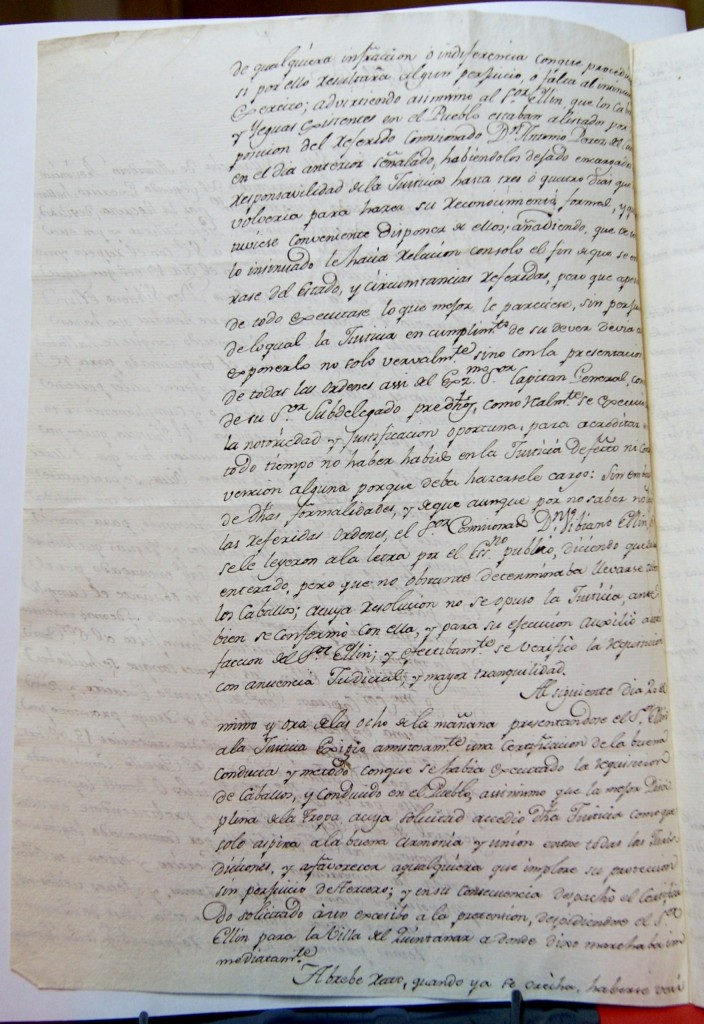 de qualquiera infracion ó indiferencia conque procediese
si por ello resultara algun perjuicio, o falta al
Exercito; advirtiendo asimismo al S.or Ellin, que los Cab
y Yeguas existentes en el Pueblo estaban alistados por
posicion del referido Comisionado D.n Antonio
en el dia anterior señalado, habiendolos dejado encargados
responsavilidad de la Justicia hasta tres ó quatro dias que
volveria para hazer su reconocimiento formal, y q
tuviese conveniente disponer de ellos; añadiendo, que
lo insinuado le hacia relacion con solo el fin de que se en
rase del Estado, y circunstancias referidas, pero que
de todo executase lo que mejor le pareciese, sin perju
de lo qual la Justicia en cumplim.to de su dever devia
exponerlo no solo vervalm.te sino con la presentacion
de todas las ordenes assi del Ex.mo S.or Capitan General, con
de su S.or Subdelegado predho, como realm.te se executó
la notoriedad y justificacion oportuna, para acreditar
todo tiempo no haber habido en la Justicia defecto ni
vencion alguna porque deba hazersele cargo: Sin
de dhas formalidades, y de que aunque por no saber
las referidas ordenes, el S.or Comisionado D.n Vibiano Ellin
se le leyeron a la letra por el Ess.no publico, diciendo que
enterado, pero que no obstante determinaba llevarse
los Caballos; a cuya resolucion no se opuso la Justicia, antes
bien se conformó con ella, y para su ejecucion auxilió a
faccion del S.or Ellin; y efectibam.te se verificó la requisicion
con anuencia Judicial, y mayor tranquilidad.
Al siguiente dia 20 del
mismo y ora de las ocho de la mañana presentandose el S.or Ellin
a la Justicia exigio amistosam.te una Certificacion de la buena
Conducta y metodo conque se habia executado la requisicion
de Caballos, y conducido en el Pueblo, assimismo que la mejor Disci
plina de la Tropa, a cuya solicitud accedio dha Justicia como que
solo aspira a la buena armonia y union entre todas las Juris
diciones, y a favorecer a qualquiera que implore su proteccion
sin perjuicio de tercero; y en su consecuencia despachó el Certifica
do solicitado a un excesibo a la pretension, despidiendose el S.or
Ellin para la Villa del Quintanar a donde dixo marchaba in
mediatam.te
A brebe rato, quando ya se creiha, haberse